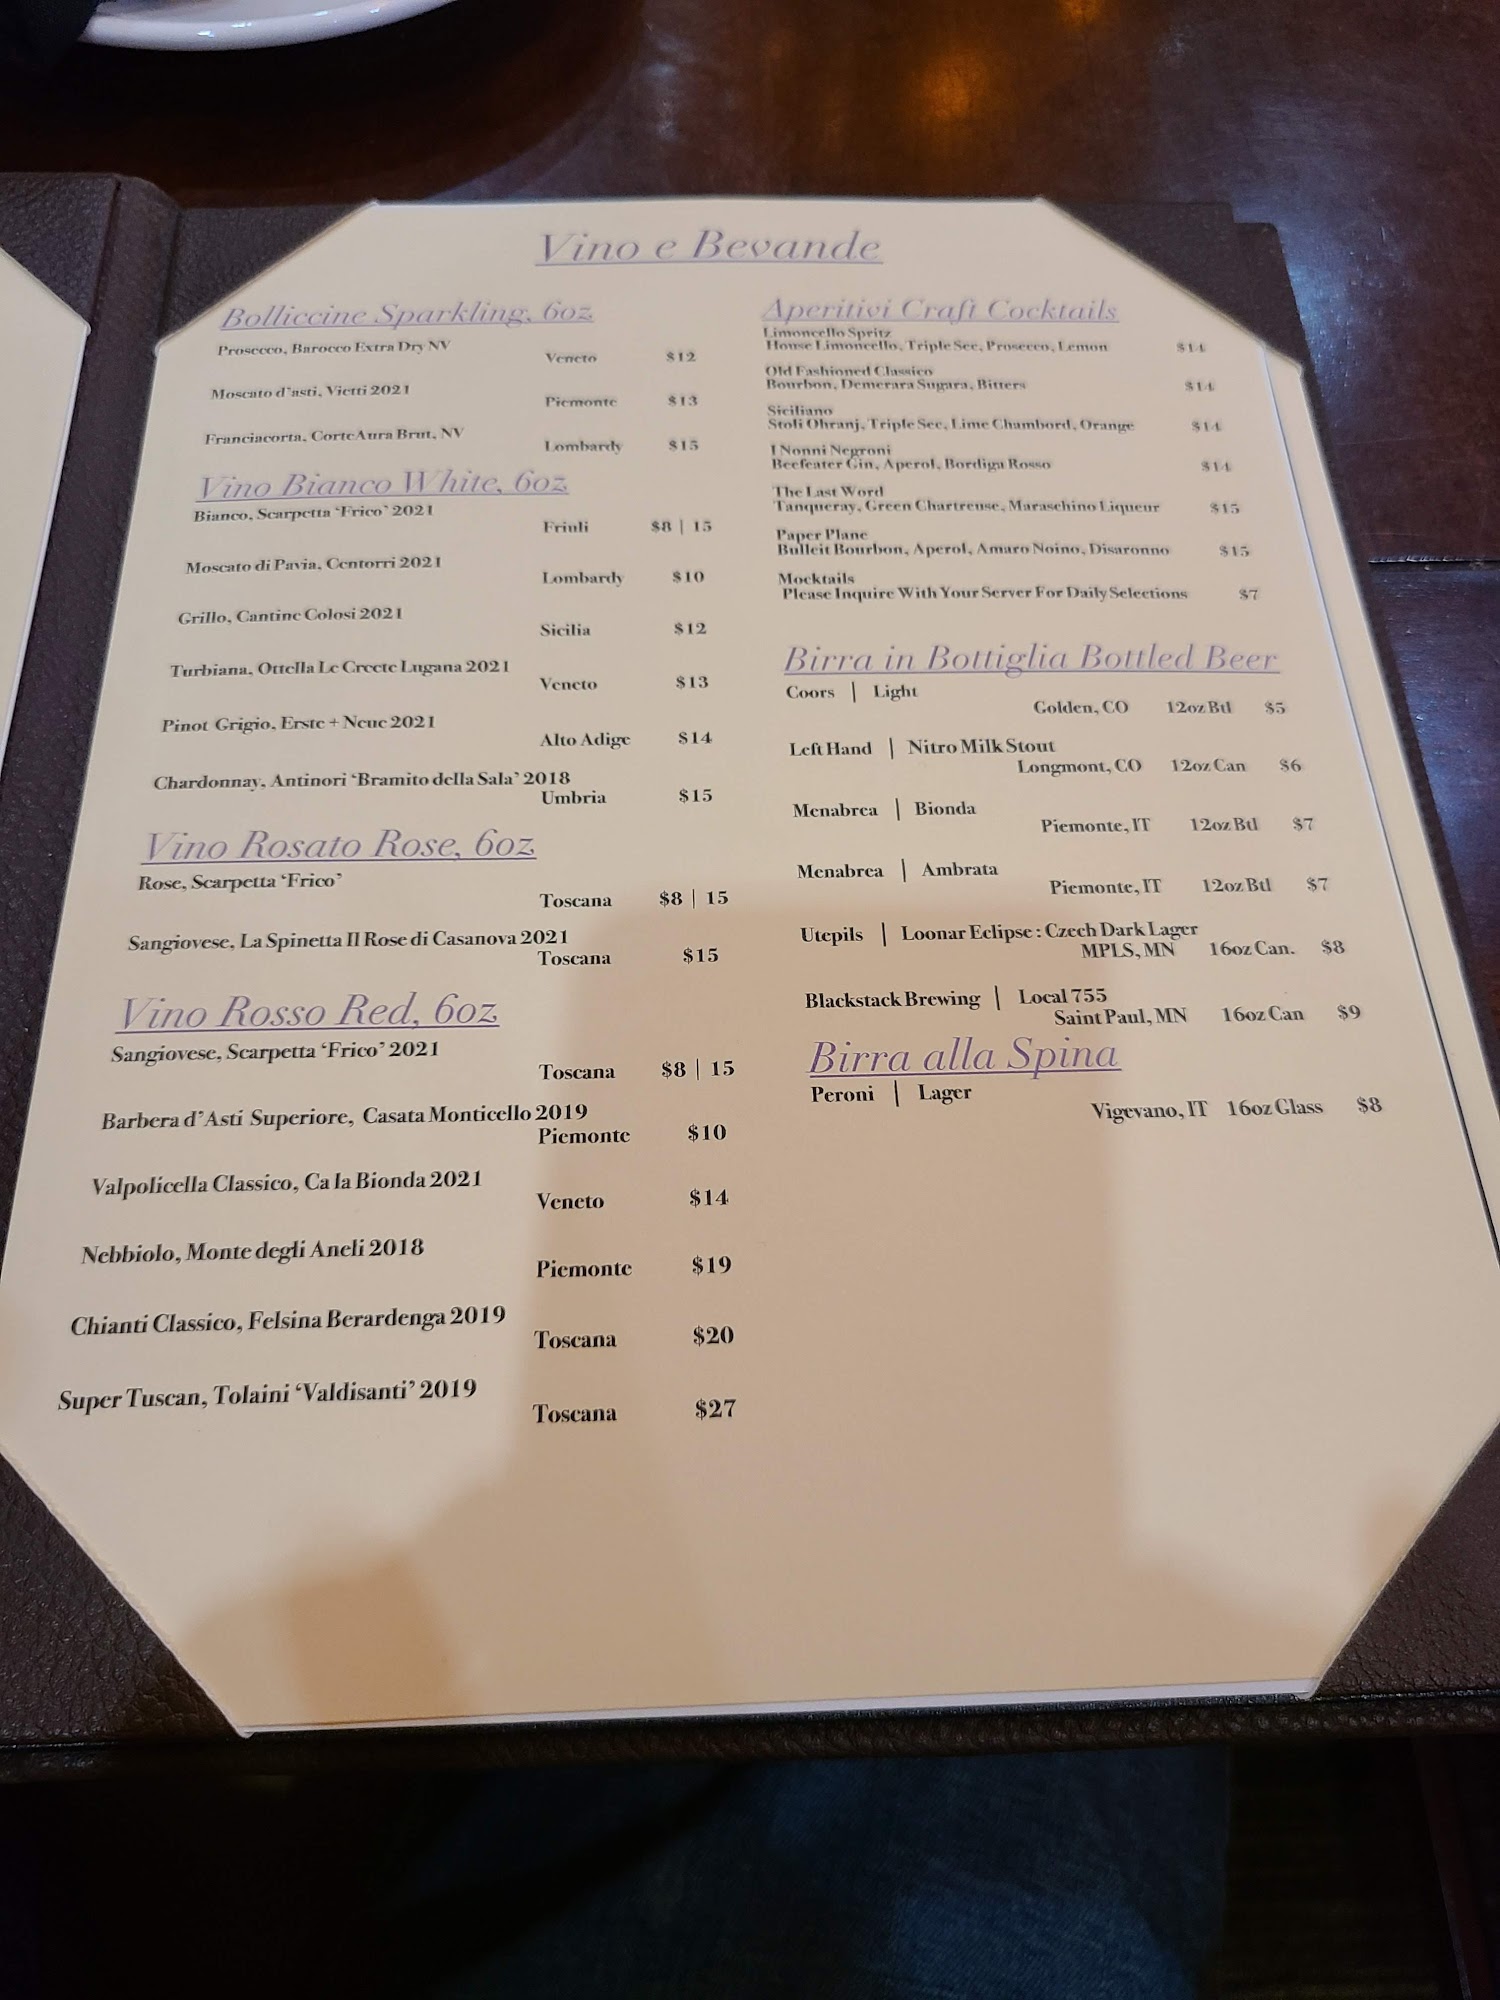 Vino e Bevande
Bolliccine Sparkling, 6oz
Prosecco, Barocco Extra Dry NV
Veneto $12
Moscato d'asti, Vietti 2021
Piemonte $13
Franciacorta, CorteAura Brut, NV
Lombardy $15
Vino Bianco White, 6oz
Bianco, Scarpetta ‘Frico’ 2021
Friuli $8 | 15
Moscato di Pavia, Centorri 2021
Lombardy $10
Grillo, Cantine Colosi 2021
Sicilia $12
Turbiana, Ottella Le Creete Lugana 2021
Veneto $13
Pinot Grigio, Erste + Neue 2021
Alto Adige $14
Chardonnay, Antinori ‘Bramito della Sala’ 2018
Umbria $15
Vino Rosato Rose, 6oz
Rose, Scarpetta ‘Frico’
Toscana $8 | 15
Sangiovese, La Spinetta Il Rose di Casanova 2021
Toscana $15
Vino Rosso Red, 6oz
Sangiovese, Scarpetta ‘Frico’ 2021
Toscana $8 | 15
Barbera d’Asti Superiore, Casata Monticello 2019
Piemonte $10
Valpolicella Classico, Ca la Bionda 2021
Veneto $14
Nebbiolo, Monte degli Aneli 2018
Piemonte $19
Chianti Classico, Felsina Berardenga 2019
Toscana $20
Super Tuscan, Tolaini ‘Valdisanti’ 2019
Toscana $27
Aperitivi Craft Cocktails
Limoncello Spritz
House Limoncello, Triple Sec, Prosecco, Lemon $14
Old Fashioned Classico
Bourbon, Demerara Sugara, Bitters $14
Siciliano
Stoli Ohranj, Triple Sec, Lime Chambord, Orange $14
I Nonni Negroni
Beefeater Gin, Aperol, Bordiga Rosso $14
The Last Word
Tanqueray, Green Chartreuse, Maraschino Liqueur $15
Paper Plane
Bulleit Bourbon, Aperol, Amaro Noino, Disaronno $15
Mocktails
Please Inquire With Your Server For Daily Selections $7
Birra in Bottiglia Bottled Beer
Coors | Light
Golden, CO 12oz Btl $5
Left Hand | Nitro Milk Stout
Longmont, CO 12oz Can $6
Menabrea | Bionda
Piemonte, IT 12oz Btl $7
Menabrea | Ambrata
Piemonte, IT 12oz Btl $7
Utepils | Loonar Eclipse : Czech Dark Lager
MPLS, MN 16oz Can. $8
Blackstack Brewing | Local 755
Saint Paul, MN 16oz Can $9
Birra alla Spina
Peroni | Lager
Vigevano, IT 16oz Glass $8